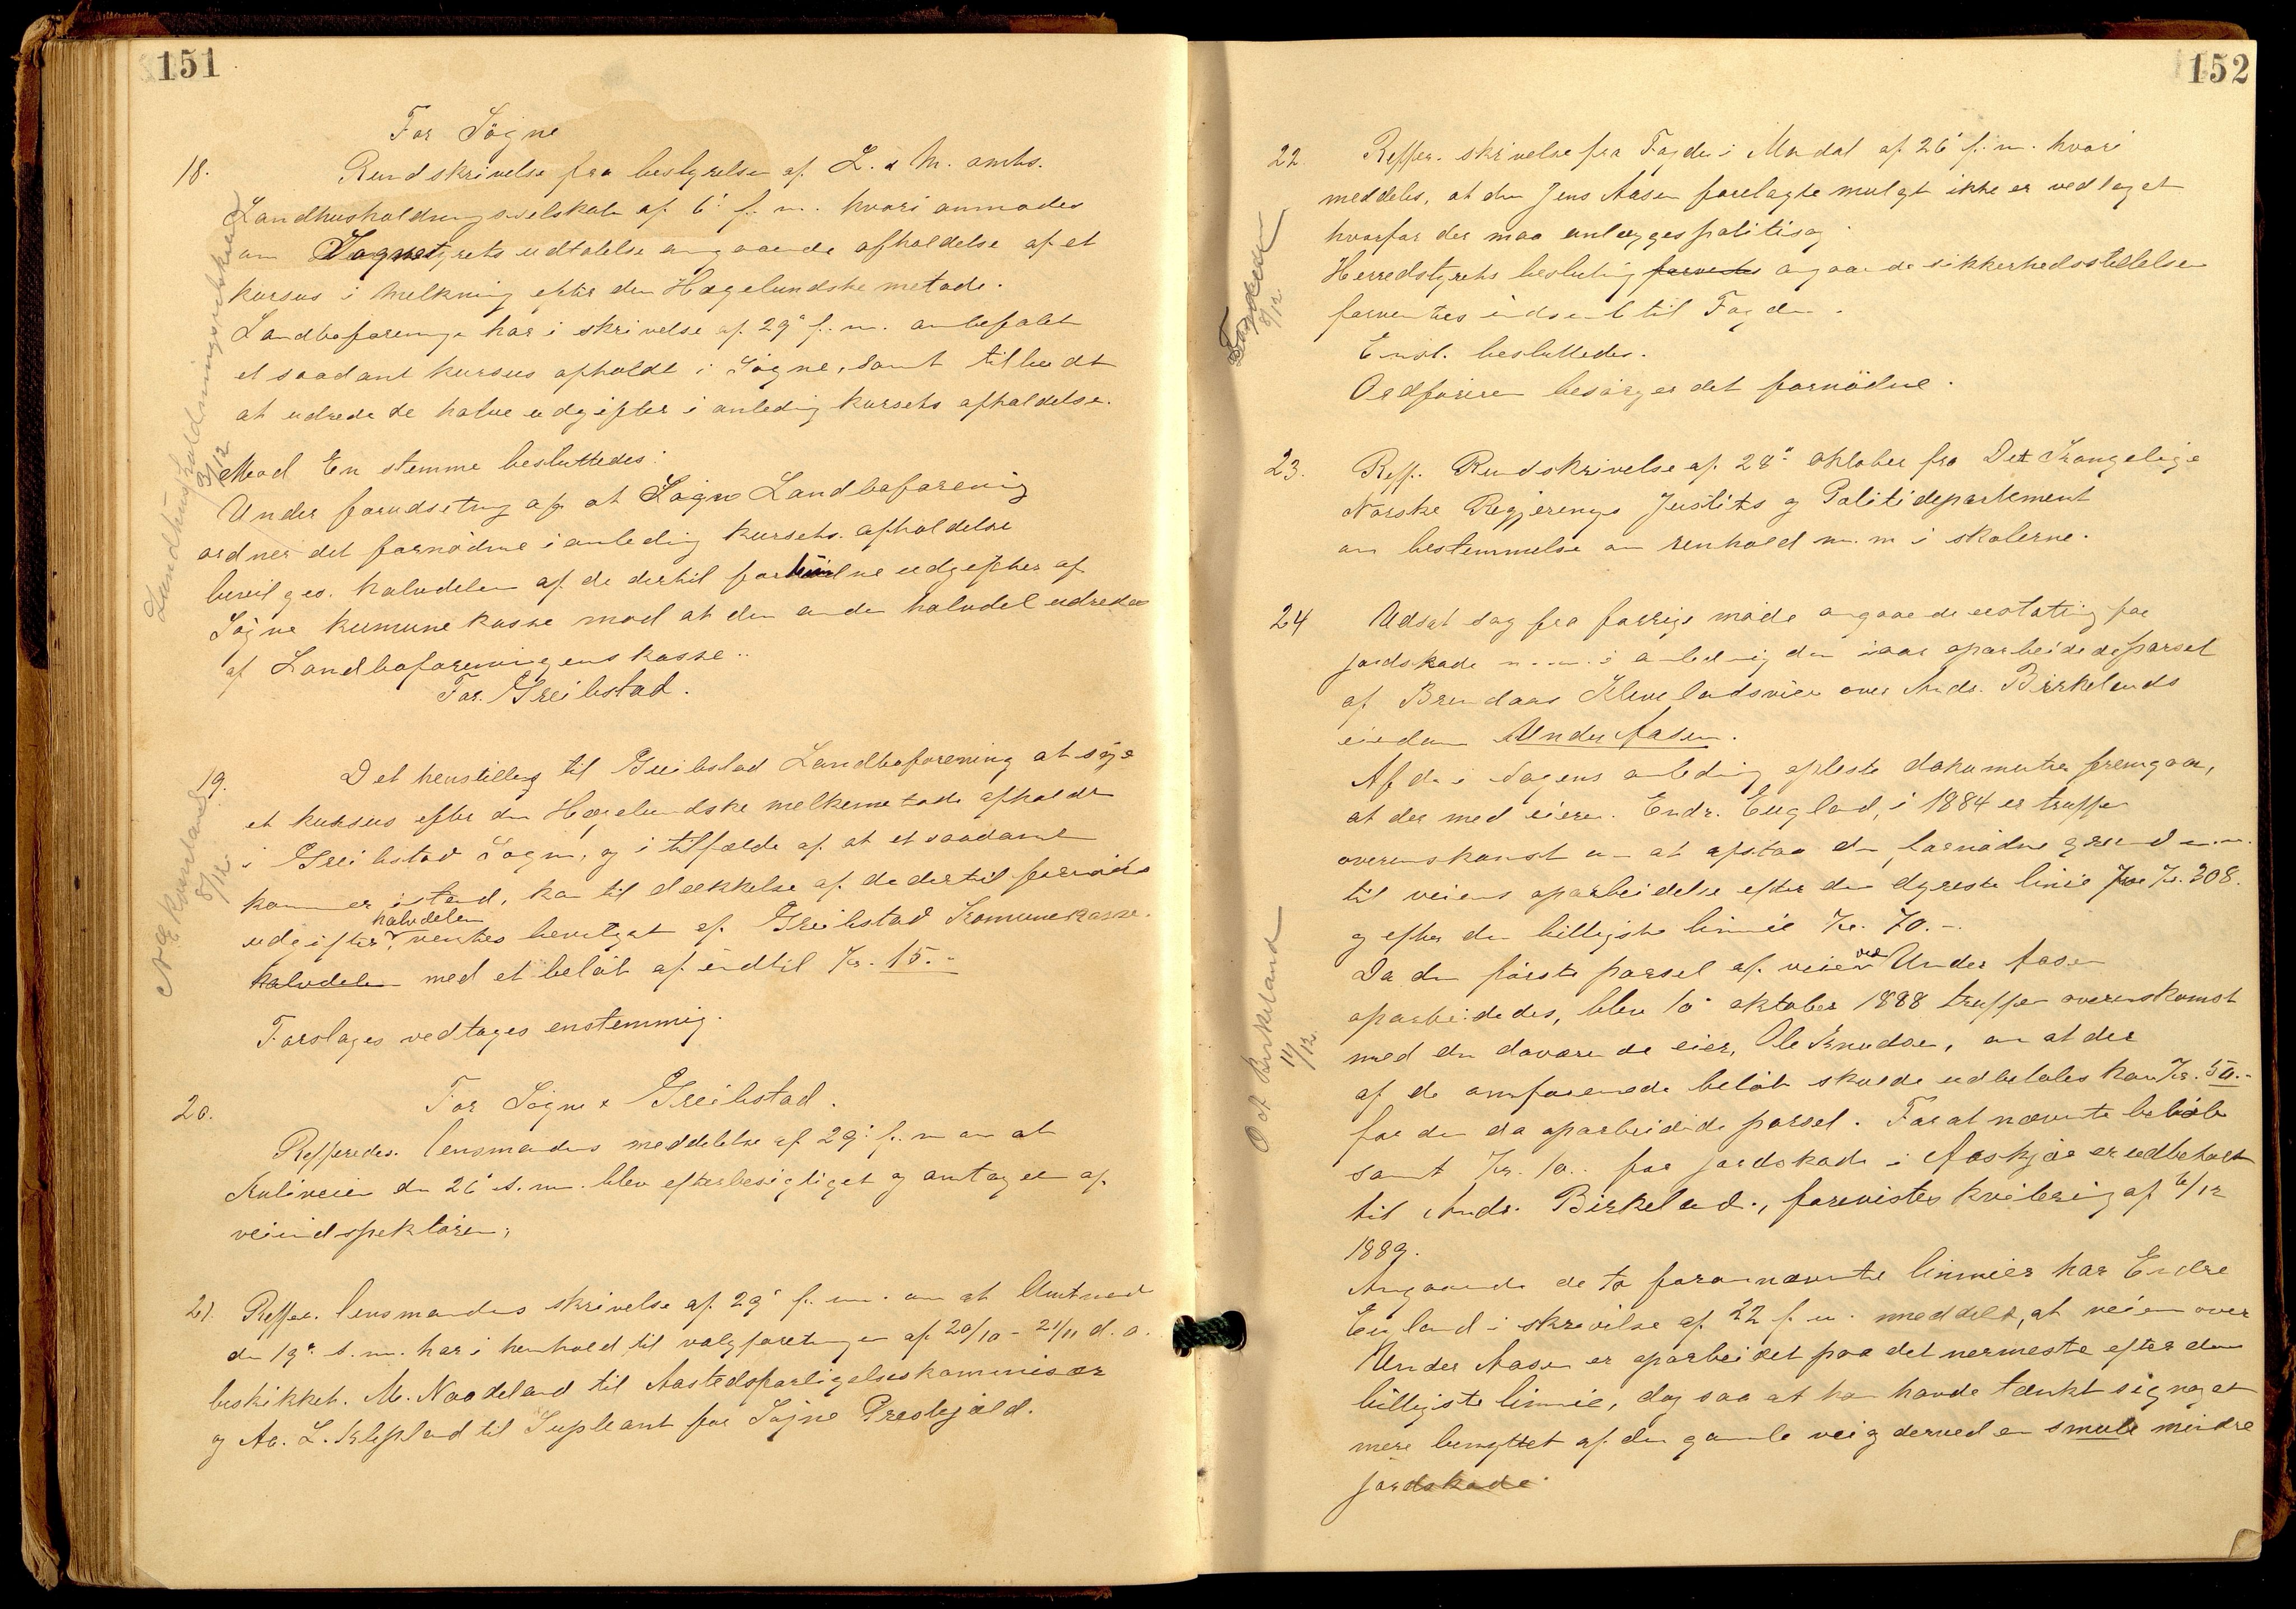 151
For Søgne
18. Rundskrivelse fra bestyrelsen af L. & M. amts.
Landhusholdningsselskab af 6' f. m. hvori anmodes
om Sognestyrets udtalelse angaaende afholdelse af et
kursus i melkning efter den Hegelundske metode.
Landboforeninge har i skrivelse af 29' f. m. anbefalet
et saadant kursus afholdt i Søgne, samt tilbudt
at udrede de halve udgifter i anledig kursets afholdelse.
Landhusholdningsselskabet 8/12
Mod En stemme besluttedes:
Under forudsetnig af at Søgne Landboforenig
ordner det fornødne i anledig kursets afholdelse
bevilges halvdelen af de dertil forbundne udgifter af
Søgne kumunekasse mod at den anden halvdel udredes
af Landboforeningens kasse..
For Greibstad.
19. Det henstilles til Greibstad Landboforening at søge
et kursus efter den Hegelundske melkemetode afholdt
i Greibstad Sogn, og i tilfælde af at et saadant
kommer istand, kan til dækkelse af de dertil fornødne
halvdelen
udgifter ventes bevilget af Greibstad Komunekasse.
halvdelen med et beløb af indtil Kr. 15.-
8/12
Forslages vedtages enstemmig.
For Søgne & Greibstad.
20.
Refferedes lensmandens meddelelse af 29' f. m om at
veien den 26' s. m. blev efterbesigtiget og antaget af
veiindspektøren,
21. Reffer. lensmandens skrivelse af 29' f. m. om at Amtmand
den 19' s. m. har i henhold til valgforetninger af 20/10 - 21/11 d. a.
beskikket M. Naadeland til Aastedsforligelseskommisær
og Aa. L. Klepland til Supleant for Søgne Prestegjæld.
152
22. Reffer. skrivelse fra Fogden i Mandal af 26' f. m. hvori
meddeles, at den Jens Aasen forelagte mulgt ikke er vedtaget
hvorfor der maa anlægges politisag.
Herredstyrets beslutnig forventes angaaende sikkerhedsstillelsen
forventes indsendt til Fogden.
Enst. besluttedes.
Ordføreren besørger det fornødne.
Fogden 8/12
23. Reff. Rundskrivelse af 28' oktober fra Det Kongelige
Norske Regjerings Justits og Politidepartement
om bestemmelse om renhold m. m i skolerne.
24 Udsat sag fra forrige møde angaaende erstatnig for
jordskade m. m. i anlednig den iaar oparbeidede parsel
af Brendaas Klevelandsveien over Ands. Birkelands
eiendom Under Aasen.
Af de i Sagens anledning opleste dokumenter fremgaar,
at der med eieren Endr. Eugland, i 1884 er truffen
overenskomst om at afstaa den fornødne grund m. m.
til veiens oparbeidelse efter den dyreste linie for Kr. 308.
og efter den billigste linnie Kr. 70.-
Da den første parsel af veien ved Under Aasen
oparbeidedes, blev 10' oktober 1888 truffen overenskomst
med den daværende eier, Ole Knudsen, om at der
af de omforenede beløb skulde udbetales ham Kr. 50.-
for den da oparbeidede parsel. For at nævnte beløb
samt Kr. 10.. for jordskade i Aaskjær er udbetalt
til Ands. Birkeland., forevistes kvitering af 6/12
1889.
O af Birkeland 11/12
Angaaende de to forannævnte linnier har Endre
Eugland i skrivelse af 22 f. m. meddelt, at veien over
Under Aasen er oparbeidet paa det nermeste efter den
billigste linnie, dog saa at han havde tænkt sig noget
mere benyttet af den gamle vei og derved en smule mindre
jordskade.